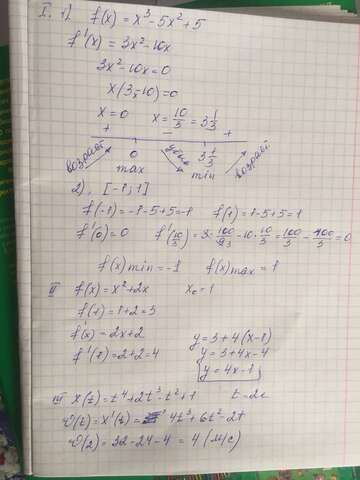 I. 1) f(x) = x³ - 5x² + 5
f'(x) = 3x² - 10x
3x² - 10x = 0
x(3x - 10) = 0
x = 0 x = 10/3 = 3 1/3
+ - +
возраст 0 убыв 3 1/3 возраст
max min
2). [-1; 1]
f(-1) = -1 - 5 + 5 = -1 f(1) = 1 - 5 + 5 = 1
f'(0) = 0 f'(10/3) = 3 · 100/9 - 10 · 10/3 = 100/3 - 100/3 = 0
f(x) min = -1 f(x) max = 1
II f(x) = x² + 2x x₀ = 1
f(1) = 1 + 2 = 3
f'(x) = 2x + 2 y = 3 + 4(x - 1)
f'(1) = 2 + 2 = 4 y = 3 + 4x - 4
y = 4x - 1
III x(t) = t⁴ + 2t³ - t² + 1 t = 2c
v(t) = x'(t) = 4t³ + 6t² - 2t
v(2) = 32 - 24 - 4 = 4 (м/с)